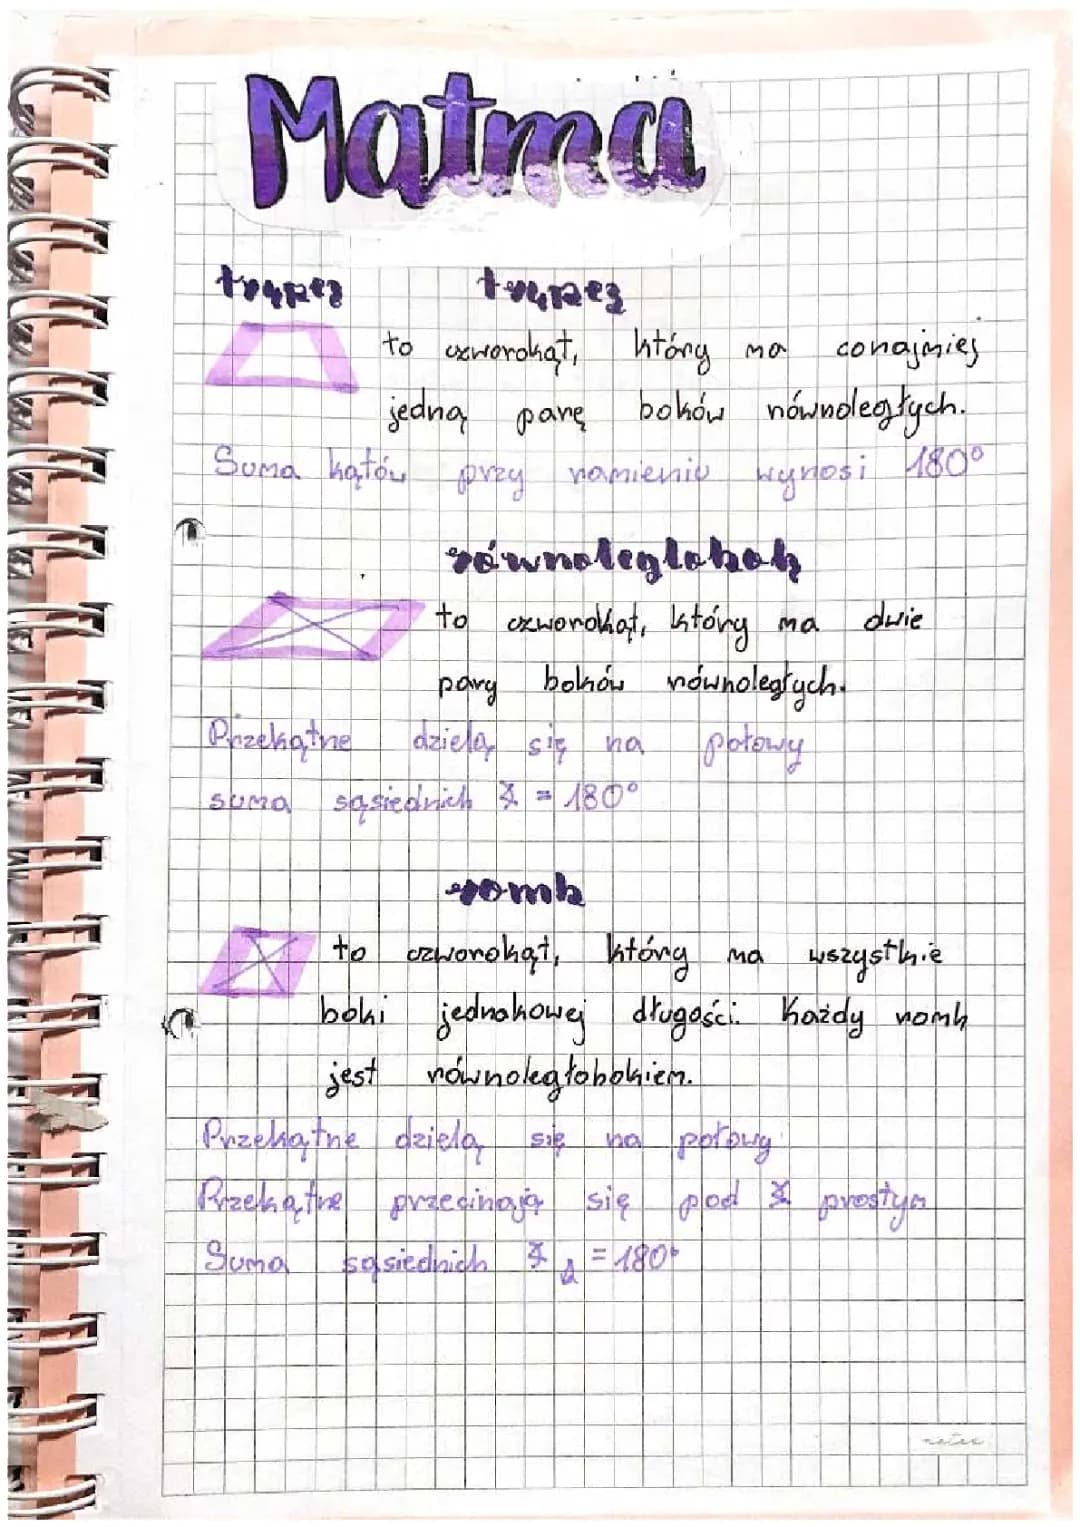 Matma
trapez trapez
to czworokąt, który ma conajmiej
jedną parę boków równoległych.
Suma kątów przy ramieniu wynosi 180°
równoleglobok
to czworokąt, który ma dwie
pary boków równoległych.
Przekątne dzielą się na połowy
suma sąsiednich ∡ = 180°
romb
to czworokąt, który ma wszystkie
boki jednakowej długości. Każdy romb
jest równoległobokiem.
Przekątne dzielą się na połowy
Przekątne przecinają się pod ∡ prostym
Suma sąsiednich ∡ = 180°